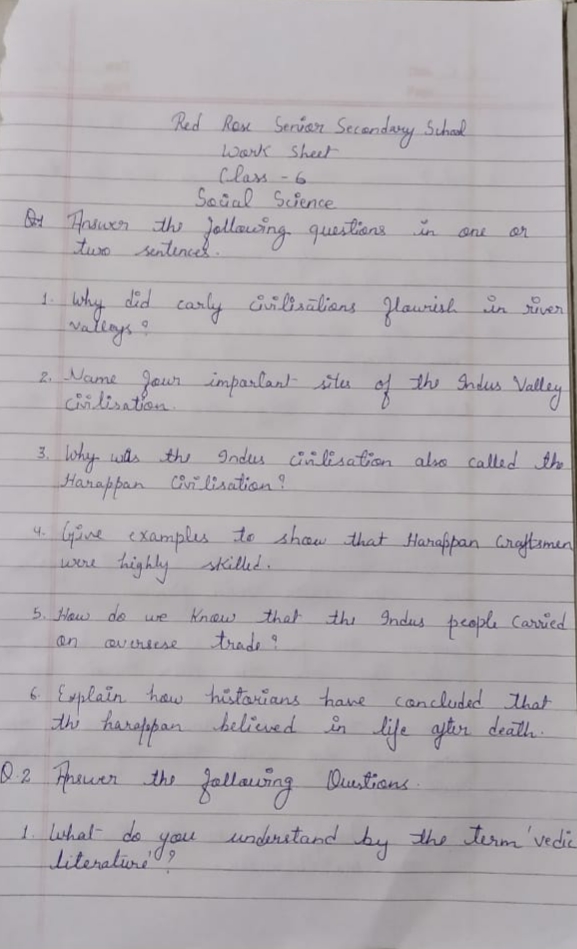 Red Rose Senior Secondary School
Work Sheet
Class - 6
Social Science
Q.1 Answer the following questions in one or
two sentences.
1. Why did early civilisations flourish in river
valleys?
2. Name four important sites of the Indus Valley
Civilisation.
3. Why was the Indus civilisation also called the
Harappan Civilisation?
4. Give examples to show that Harappan Craftsmen
were highly skilled.
5. How do we know that the Indus people carried
on oversese trade?
6. Explain how historians have concluded that
the harappan believed in life after death.
Q.2 Answer the following Questions.
1. What do you understand by the term 'vedic
literature'?